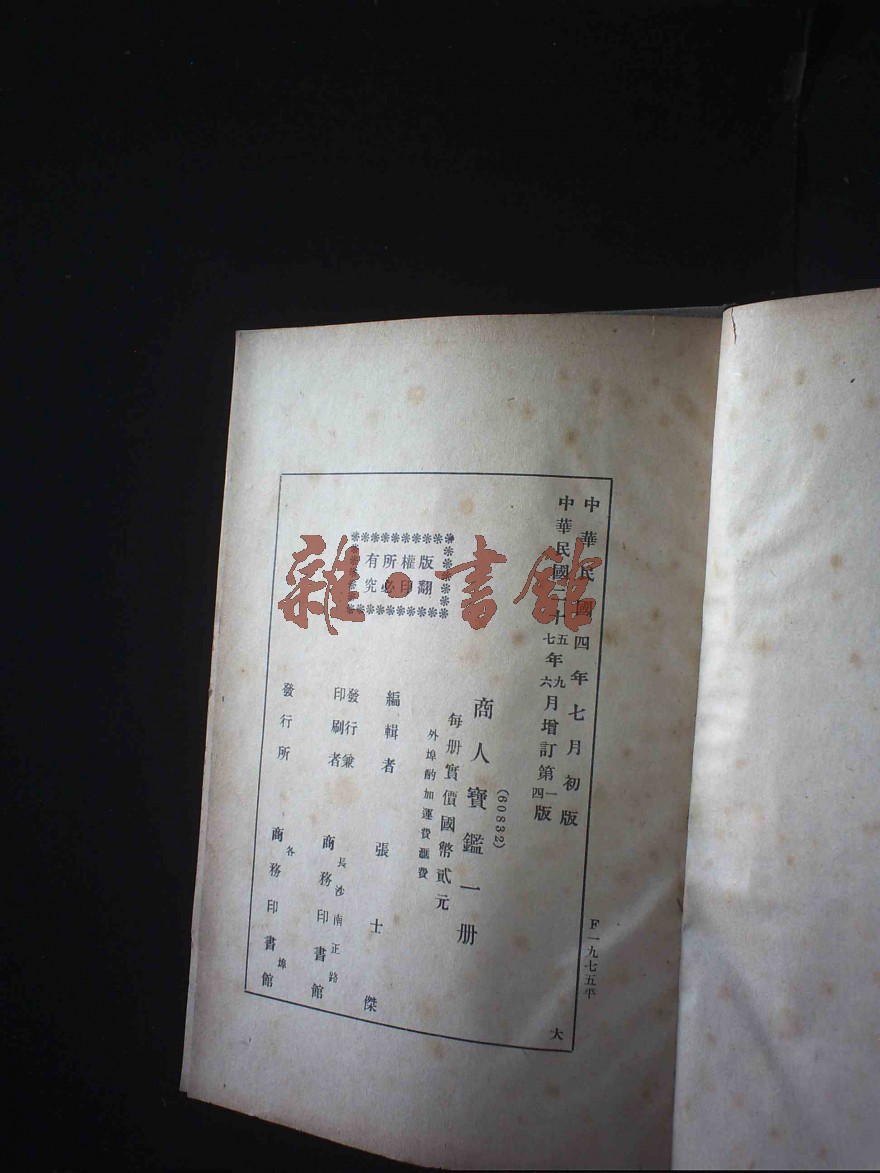 中華民國四年七月初版
中華民國二十五七年九六月增訂第一四版
(60832)
商人寶鑑一册
每册實價國幣貳元
外埠酌加運費匯費
編輯者 張士傑
發行兼印刷者 長沙南正路 商務印書館
發行所 各埠 商務印書館
版權所有
翻印必究
F一九七五平
大
雜·書館